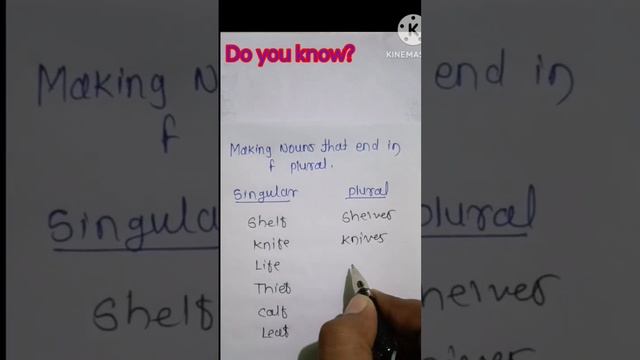 Do you know?
KINEMAS
Making Nouns that end in
f plural.
Singular plural
Shelf Shelves
Knife Knives
Life
Thief
calf
Leaf
Making N end in
f
Singular plural
Shelf helves